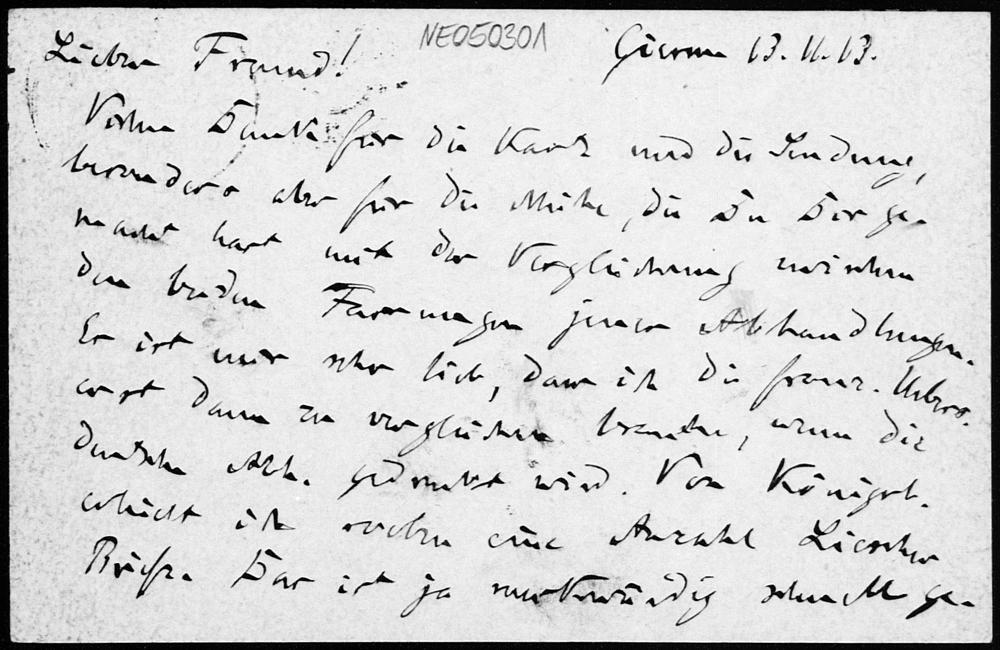 NE050301
Lieber Freund! Giessen 13.11.13.
Vielen Dank für die Karte und die Sendung,
besonders aber für die Mühe, die Du Dir ge-
macht hast mit der Vergleichung zwischen
den beiden Fassungen jener Abhandlungen.
Es ist mir sehr lieb, dass ich die franz. Uebers.
erst dann zu vergleichen brauche, wenn die
deutsche Abh. gedruckt wird. Von Königsb.
erhielt ich soeben eine Anzahl
Briefe. Das ist ja merkwürdig schnell ge-